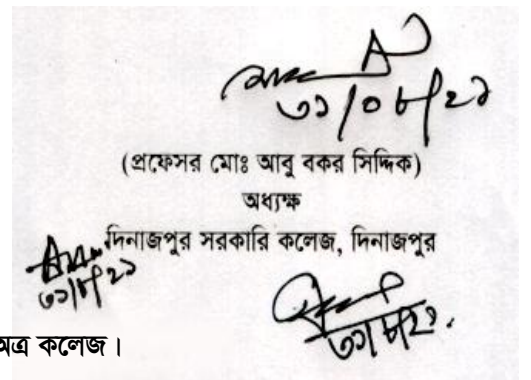 ৩১/০৮/২১
(প্রফেসর মোঃ আবু বকর সিদ্দিক)
অধ্যক্ষ
দিনাজপুর সরকারি কলেজ, দিনাজপুর
৩১/৮/২১
৩১/৮/২১.
অত্র কলেজ।